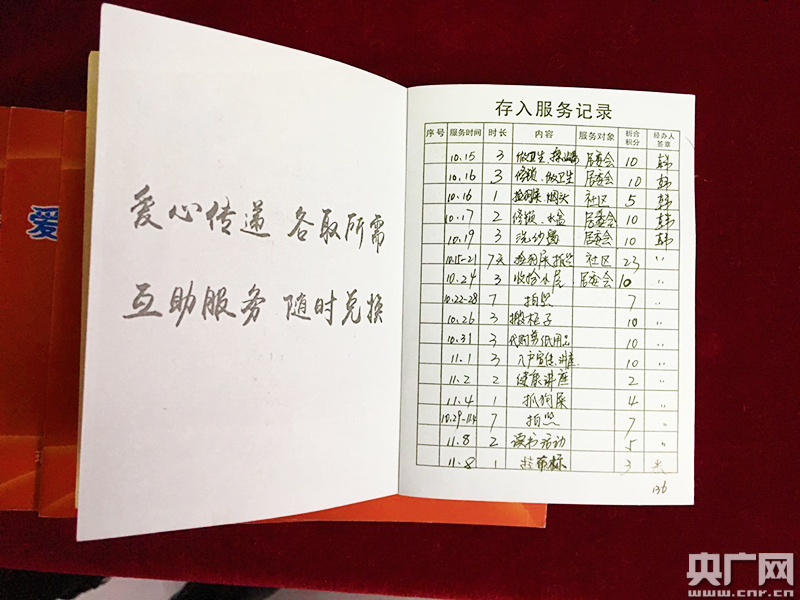 爱
爱心传递 各取所需
互助服务 随时兑换
存入服务记录
序号 服务时间 时长 内容 服务对象 折合积分 经办人签章
10.15 3 做卫生、 居委会 10 韩
10.16 3 修锁、做卫生 居委会 10 韩
10.16 1 捡狗屎、烟头 社区 5 韩
10.17 2 修锁、水盆 居委会 10 韩
10.19 3 洗沙 居委会 10 韩
10.15-21 7天 捡狗屎拍照 社区 23 〃
10.24 3 收拾小屋 居委会 10 〃
10.22-28 7 拍照 7 〃
10.26 3 搬桌子 10 〃
10.31 3 代购 纸用品 10 〃
11.1 3 入户宣传、讲座 10 〃
11.2 2 健康讲座 2 〃
11.4 1 抓狗屎 4 〃
10.29-11.4 7 拍照 7 〃
11.8 2 读书活动 5 〃
11.8 1 标 3
136
央广网
www.cnr.cn